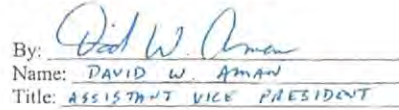 By: David W. Aman
Name: DAVID W. AMAN
Title: ASSISTANT VICE PRESIDENT